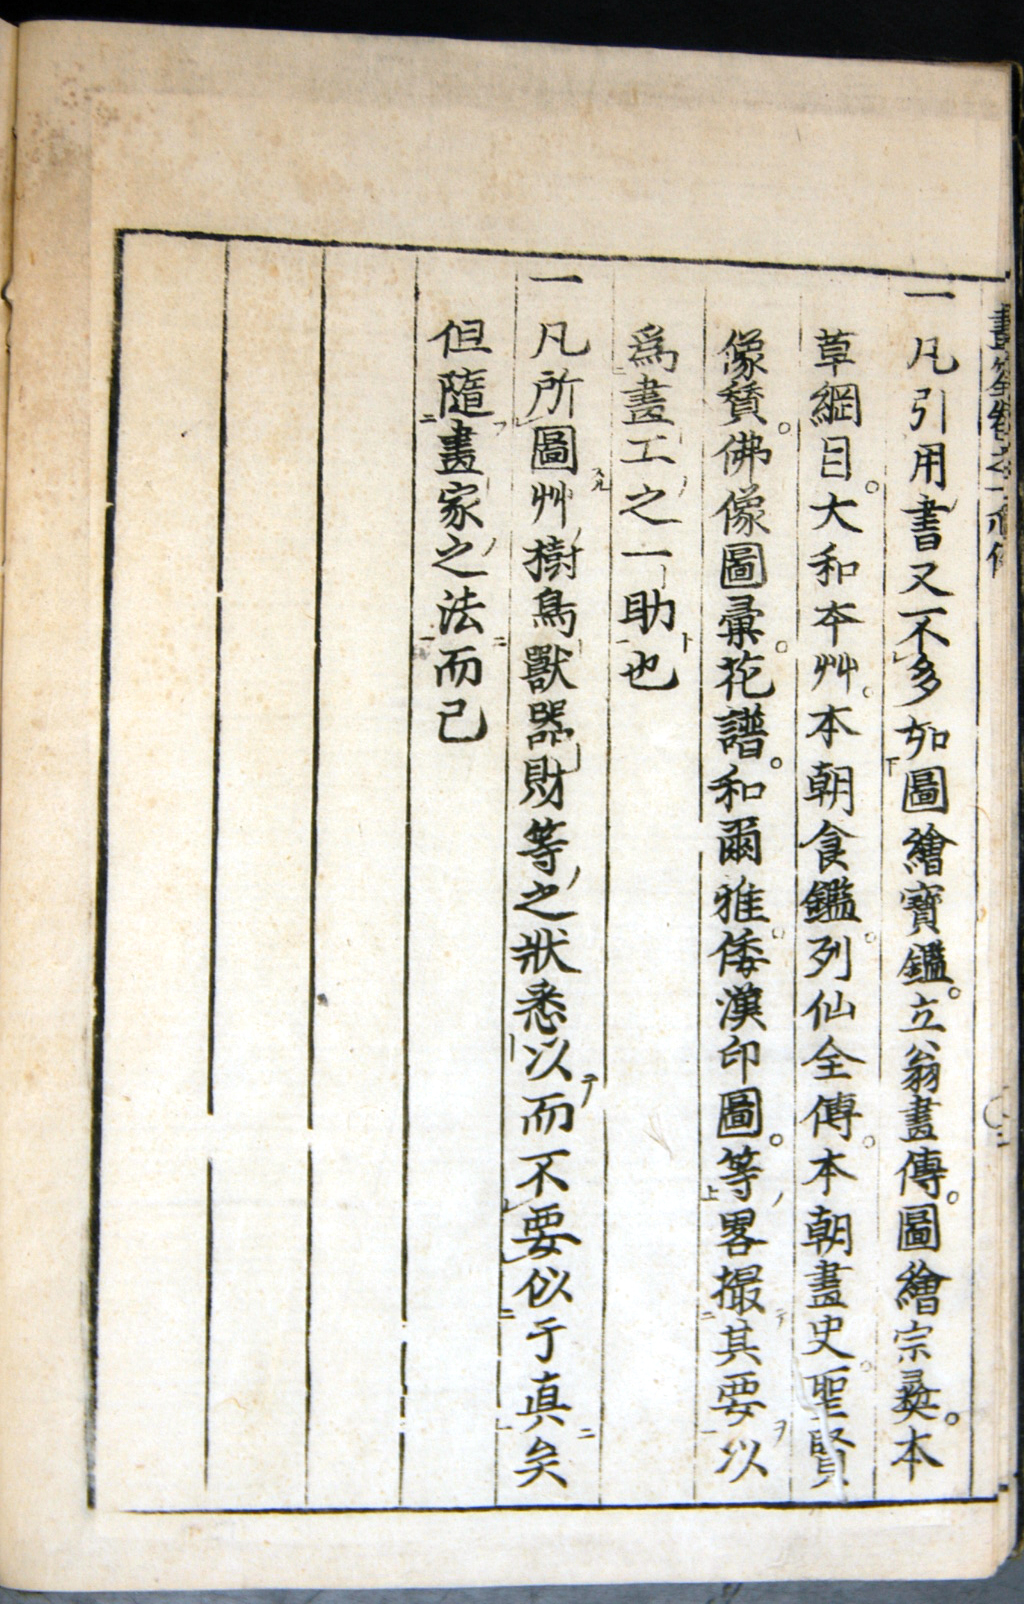 一凡引用書又不多如圖繪寶鑑。立翁畫傳。圖繪宗彜。本
草綱目。大和本艸。本朝食鑑。列仙全傳。本朝畫史。聖賢
像賛。佛像圖彙。花譜。和爾雅。倭漢印圖。等畧撮其要以
爲畫工之一助也
一凡所圖艸樹鳥獸器財等之狀悉以而不要似于真矣
但隨畫家之法而已